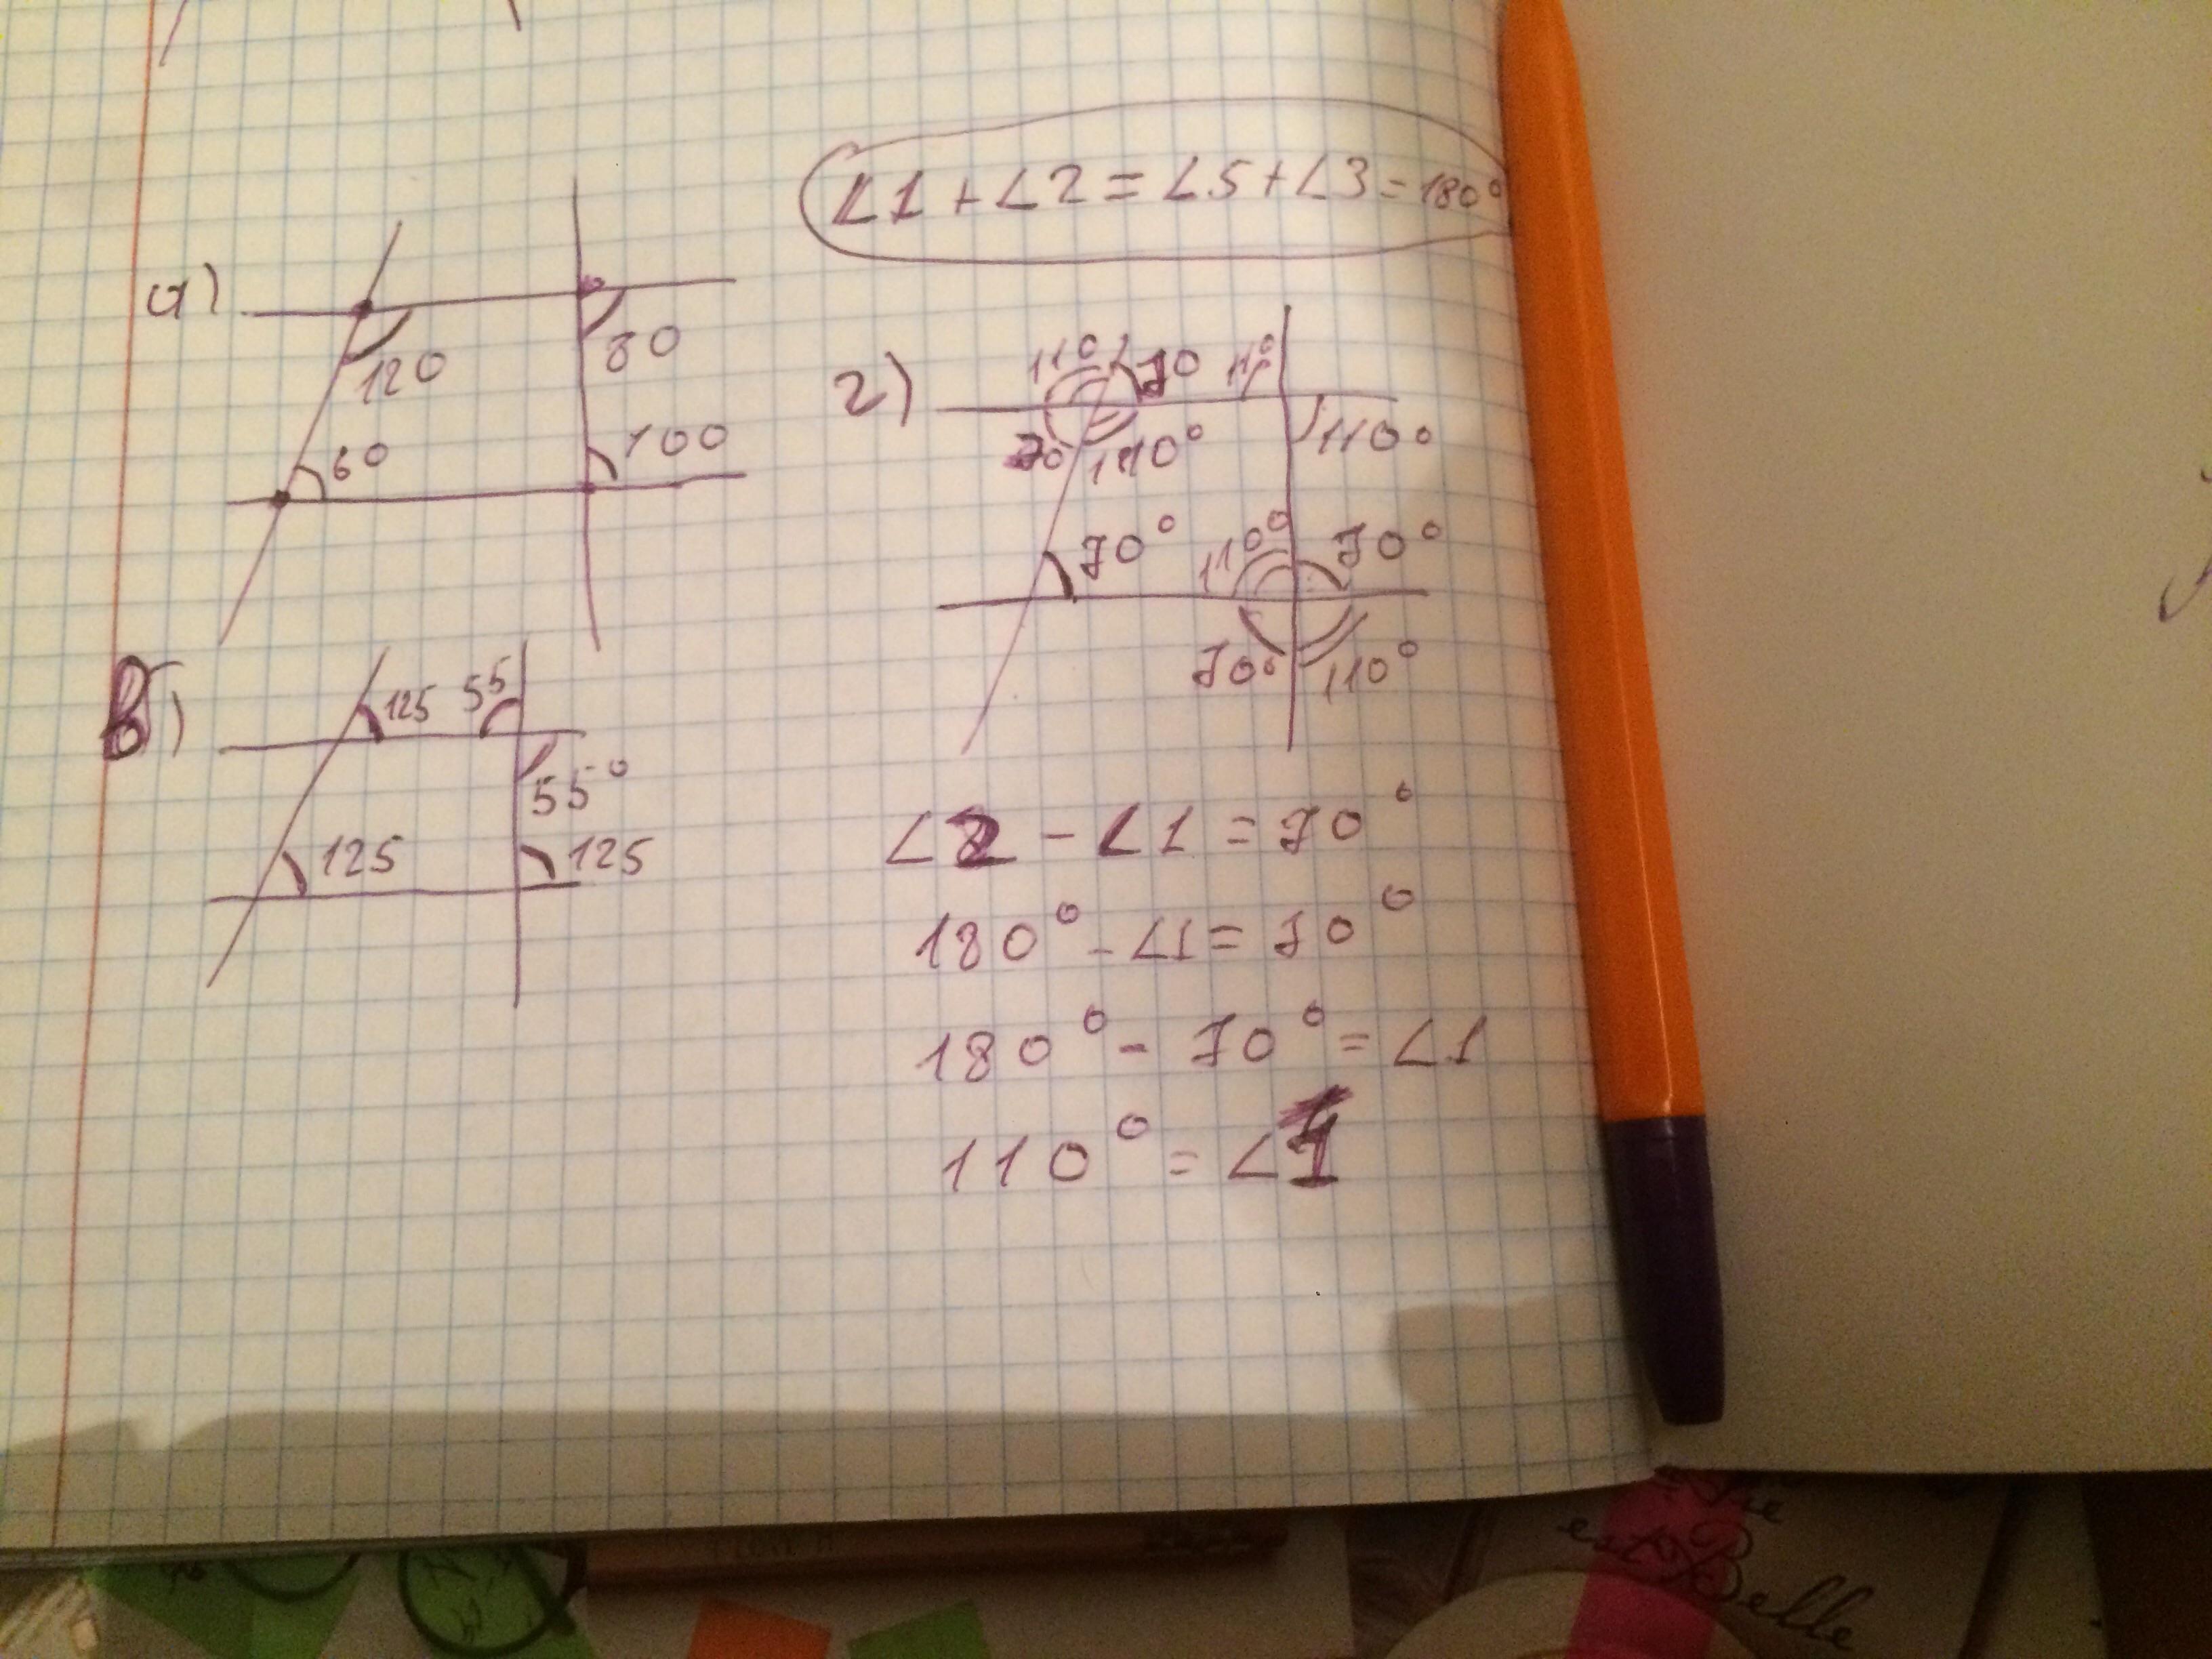 ∠1+∠2=∠5+∠3=180°
а)
120
80
60
100
г)
110
70
110
70
110°
110°
70°
110°
70°
70°
110°
в)
125
55
55°
125
125
∠2-∠1=70°
180°-∠1=70°
180°-70°=∠1
110°=∠1
Belle